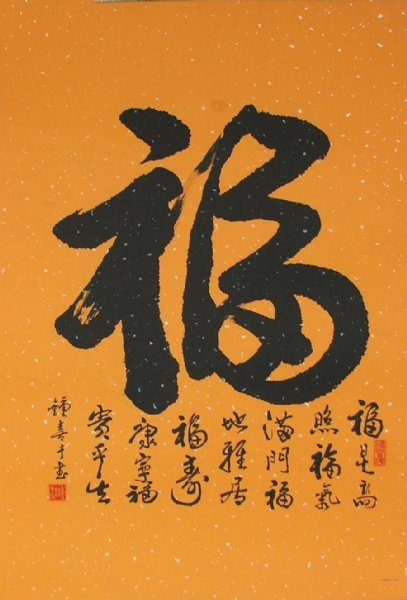 福
福星高
照福氣
滿門福
地雅居
福壽
康寧福
貴平生